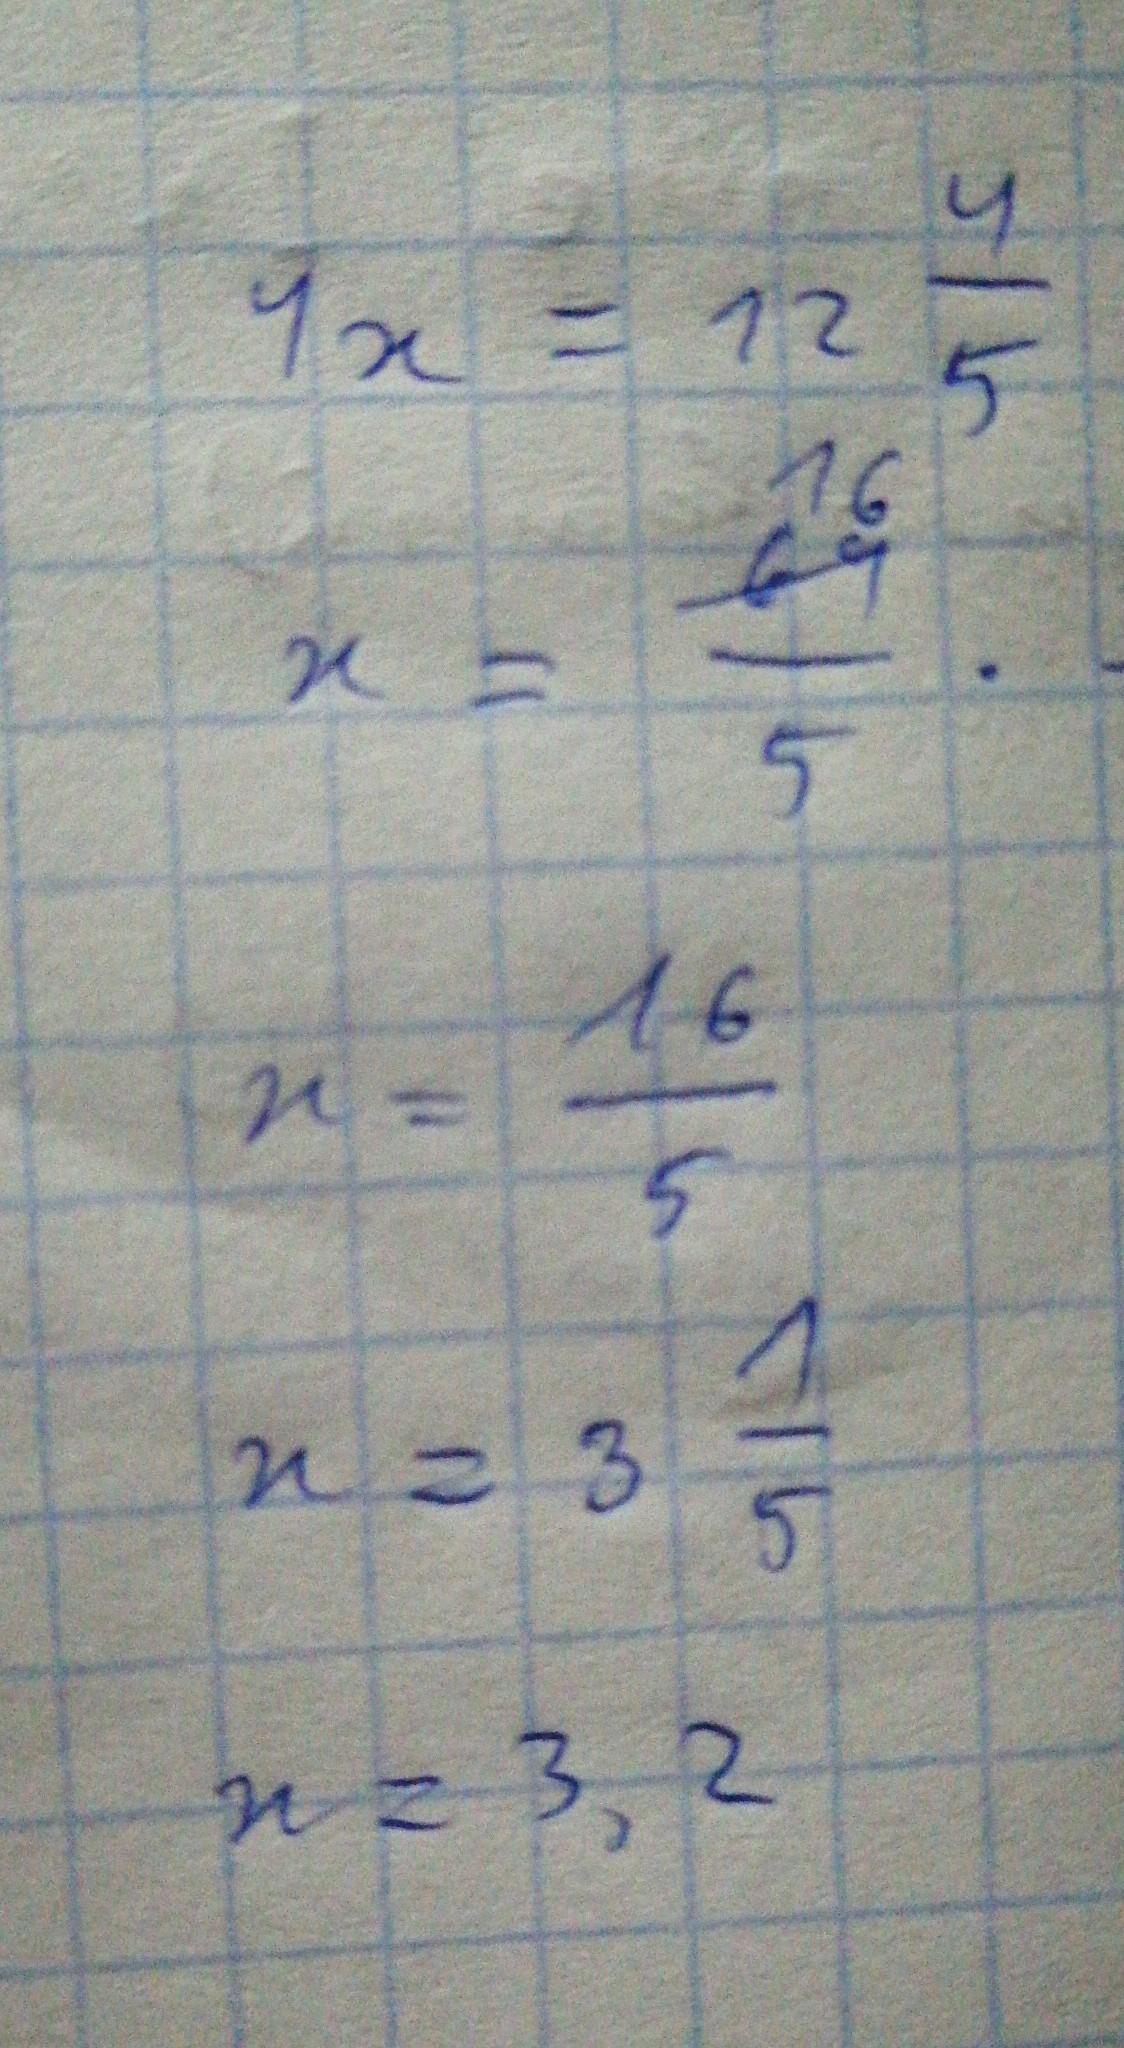 4x = 12 4/5
x = 16 64/5 ·
x = 16/5
x = 3 1/5
x = 3,2